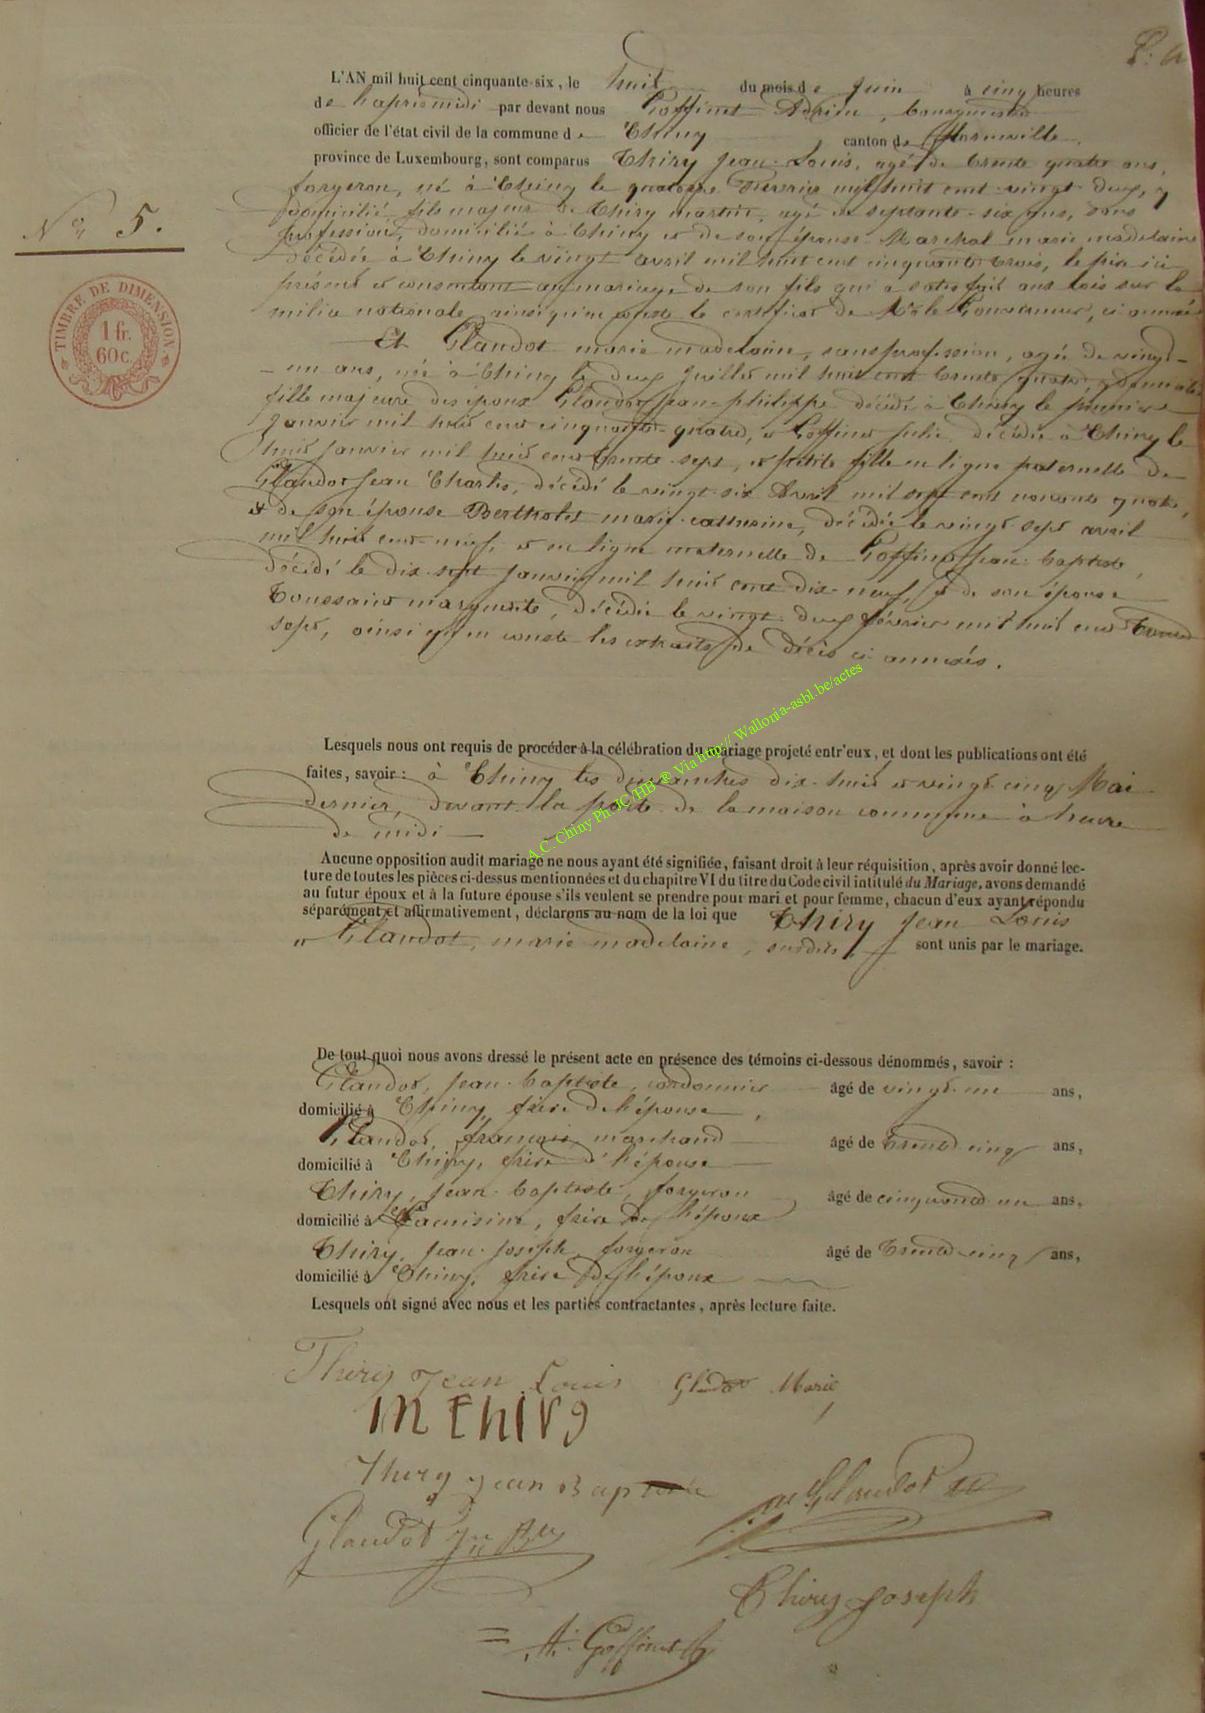 L'AN mil huit cent cinquante-six, le huit du mois de Juin à cinq heures
de l'après midi par devant nous Goffinet Adrien, bourgmestre
officier de l'état civil de la commune de Chiny canton de Florenville
province de Luxembourg, sont comparus Thiry Jean-Louis, agé de trente quatre ans,
forgeron, né à Chiny le quatorze Février mil huit cent vingt deux, y
domicilié, fils majeur de Thiry martin, agé de septante-six ans, sans
profession, domicilié à Chiny et de son épouse Marchal marie madelaine
décédée à Chiny le vingt avril mil huit cent cinquante trois, le père ici
présent et consentant au mariage de son fils qui a satisfait aux lois sur la
milice nationale ainsi qu'en conste le certificat de Mr le Gouverneur, ci annexé
N° 5.
TIMBRE DE DIMENSION
1 fr.
60 c.
Et Glaudot marie madelaine, sans profession, agée de vingt-
un ans, née à Chiny le deux Juillet mil huit cent trente quatre, y domiciliée
fille majeure des époux Glaudot Jean-philippe décédé à Chiny le premier
Janvier mil huit cent cinquante-quatre, et Goffinet Julie, décédée à Chiny le
huit Janvier mil huit cent trente-sept, et petite fille en ligne paternelle de
Glaudot Jean Charles, décédé le vingt-six Avril mil sept cent nonante quatre,
et de son épouse Bertholet marie-catherine, décédée le vingt-sept avril
mil huit cent-neuf, et en ligne maternelle de Goffinet Jean-baptiste,
décédé le dix-sept Janvier mil huit cent dix-neuf, et de son épouse
Toussaint marguerite, décédée le vingt-deux février mil huit cent trente
sept, ainsi qu'en conste les extraits de décès ci annexés.
Lesquels nous ont requis de procéder à la célébration du mariage projeté entr'eux, et dont les publications ont été
faites, savoir : à Chiny les dimanches dix-huit et vingt-cinq Mai
dernier, devant la porte de la maison commune à heure
de midi
A.C. Chiny Ph. JC HB ® Via http:// Wallonia-asbl.be/actes
Aucune opposition audit mariage ne nous ayant été signifiée, faisant droit à leur réquisition, après avoir donné lec-
ture de toutes les pièces ci-dessus mentionnées et du chapitre VI du titre du Code civil intitulé du Mariage, avons demandé
au futur époux et à la future épouse s'ils veulent se prendre pour mari et pour femme, chacun d'eux ayant répondu
séparément et affirmativement, déclarons au nom de la loi que Thiry Jean Louis
et Glaudot, marie madelaine, susdits, sont unis par le mariage.
De tout quoi nous avons dressé le présent acte en présence des témoins ci-dessous dénommés, savoir :
Glaudot, Jean-baptiste, cordonnier âgé de vingt-un ans,
domicilié à Chiny, frère de l'épouse,
Glaudot, françois, marchand âgé de trente cinq ans,
domicilié à Chiny, frère d l'épouse
Thiry, Jean-baptiste, forgeron âgé de cinquante un ans,
domicilié à Lacuisine, frère de l'époux
Thiry, Jean-Joseph, forgeron âgé de trente-cinq ans,
domicilié à Chiny, frère de l'époux
Lesquels ont signé avec nous et les parties contractantes, après lecture faite.
Thiry Jean Louis Glaudot Marie
m thiry
Thiry Jean Baptiste
Glaudot
Glaudot
Thiry Joseph
A. Goffinet